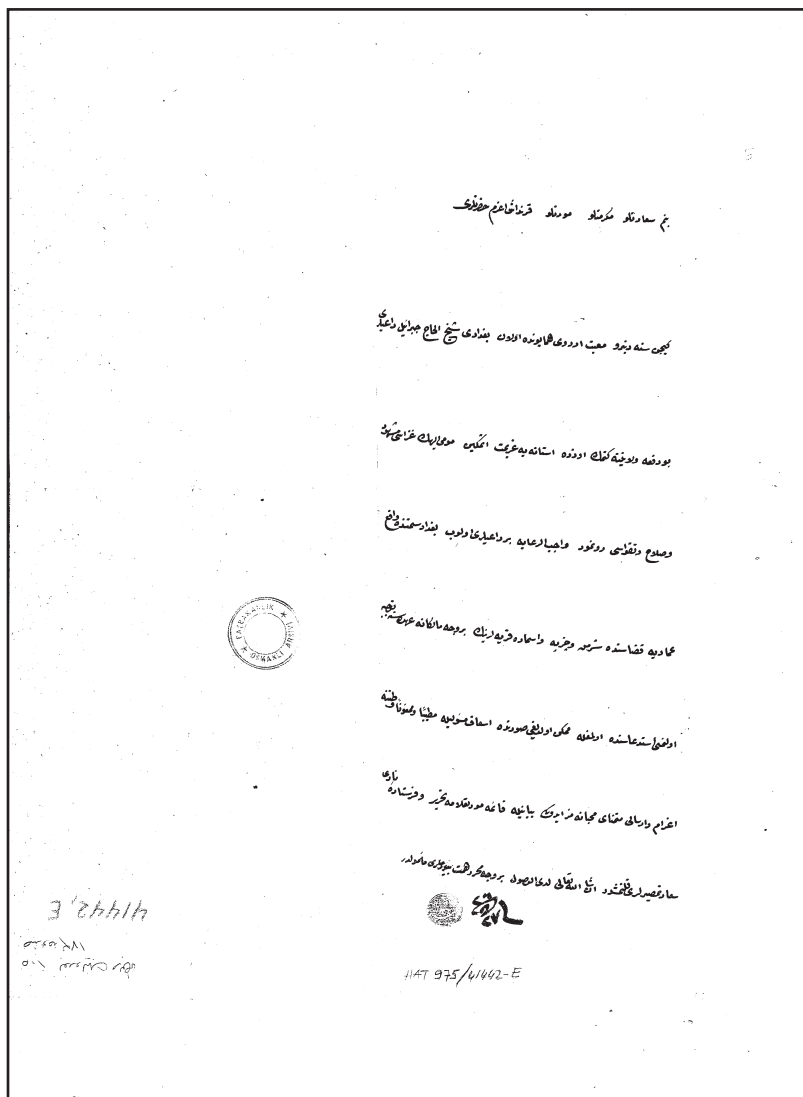 بنم سعادتلو مكرمتلو مودتلو قرنداش اعزم حضرتلرى
كچن سنه دنبرو معيت اوردوى همايونده اولان بغدادى شيخ الحاج جبرائيل داعيلرى
بودفعه ولايتنه كتمك اوزره استانه يه عزيمت ايتمكين مومى اليهك غزاسى مشهود
وصلاح وتقواسى رونمود واجب الرعايه بر داعيلرى اولوب بغداد سمتنده واقع
عماديه قضاسنده وجزيه واسماده قريه لرينك بروجه مالكانه عهده سنه توجيه
اولنمق استدعاسنده اولمغله ممكن اولديغى صورتده اسعاف مسئوليله مطيباً وممنوناً وطننه
اعزام وارسالى متمناى محبانه مز ايدوكى بيانيله قائمه مودتعلامه تحرير وفرستاده نادئ
سعادتمصيرلرى قلنمشدر ان شاء الله تعالى لدى الوصول بروجه محرر همت بيوررلرى مأمولدر
BAŞBAKANLIK ★ OSMANLI ARŞİVİ ★
41442, E
HAT 975/41442-E